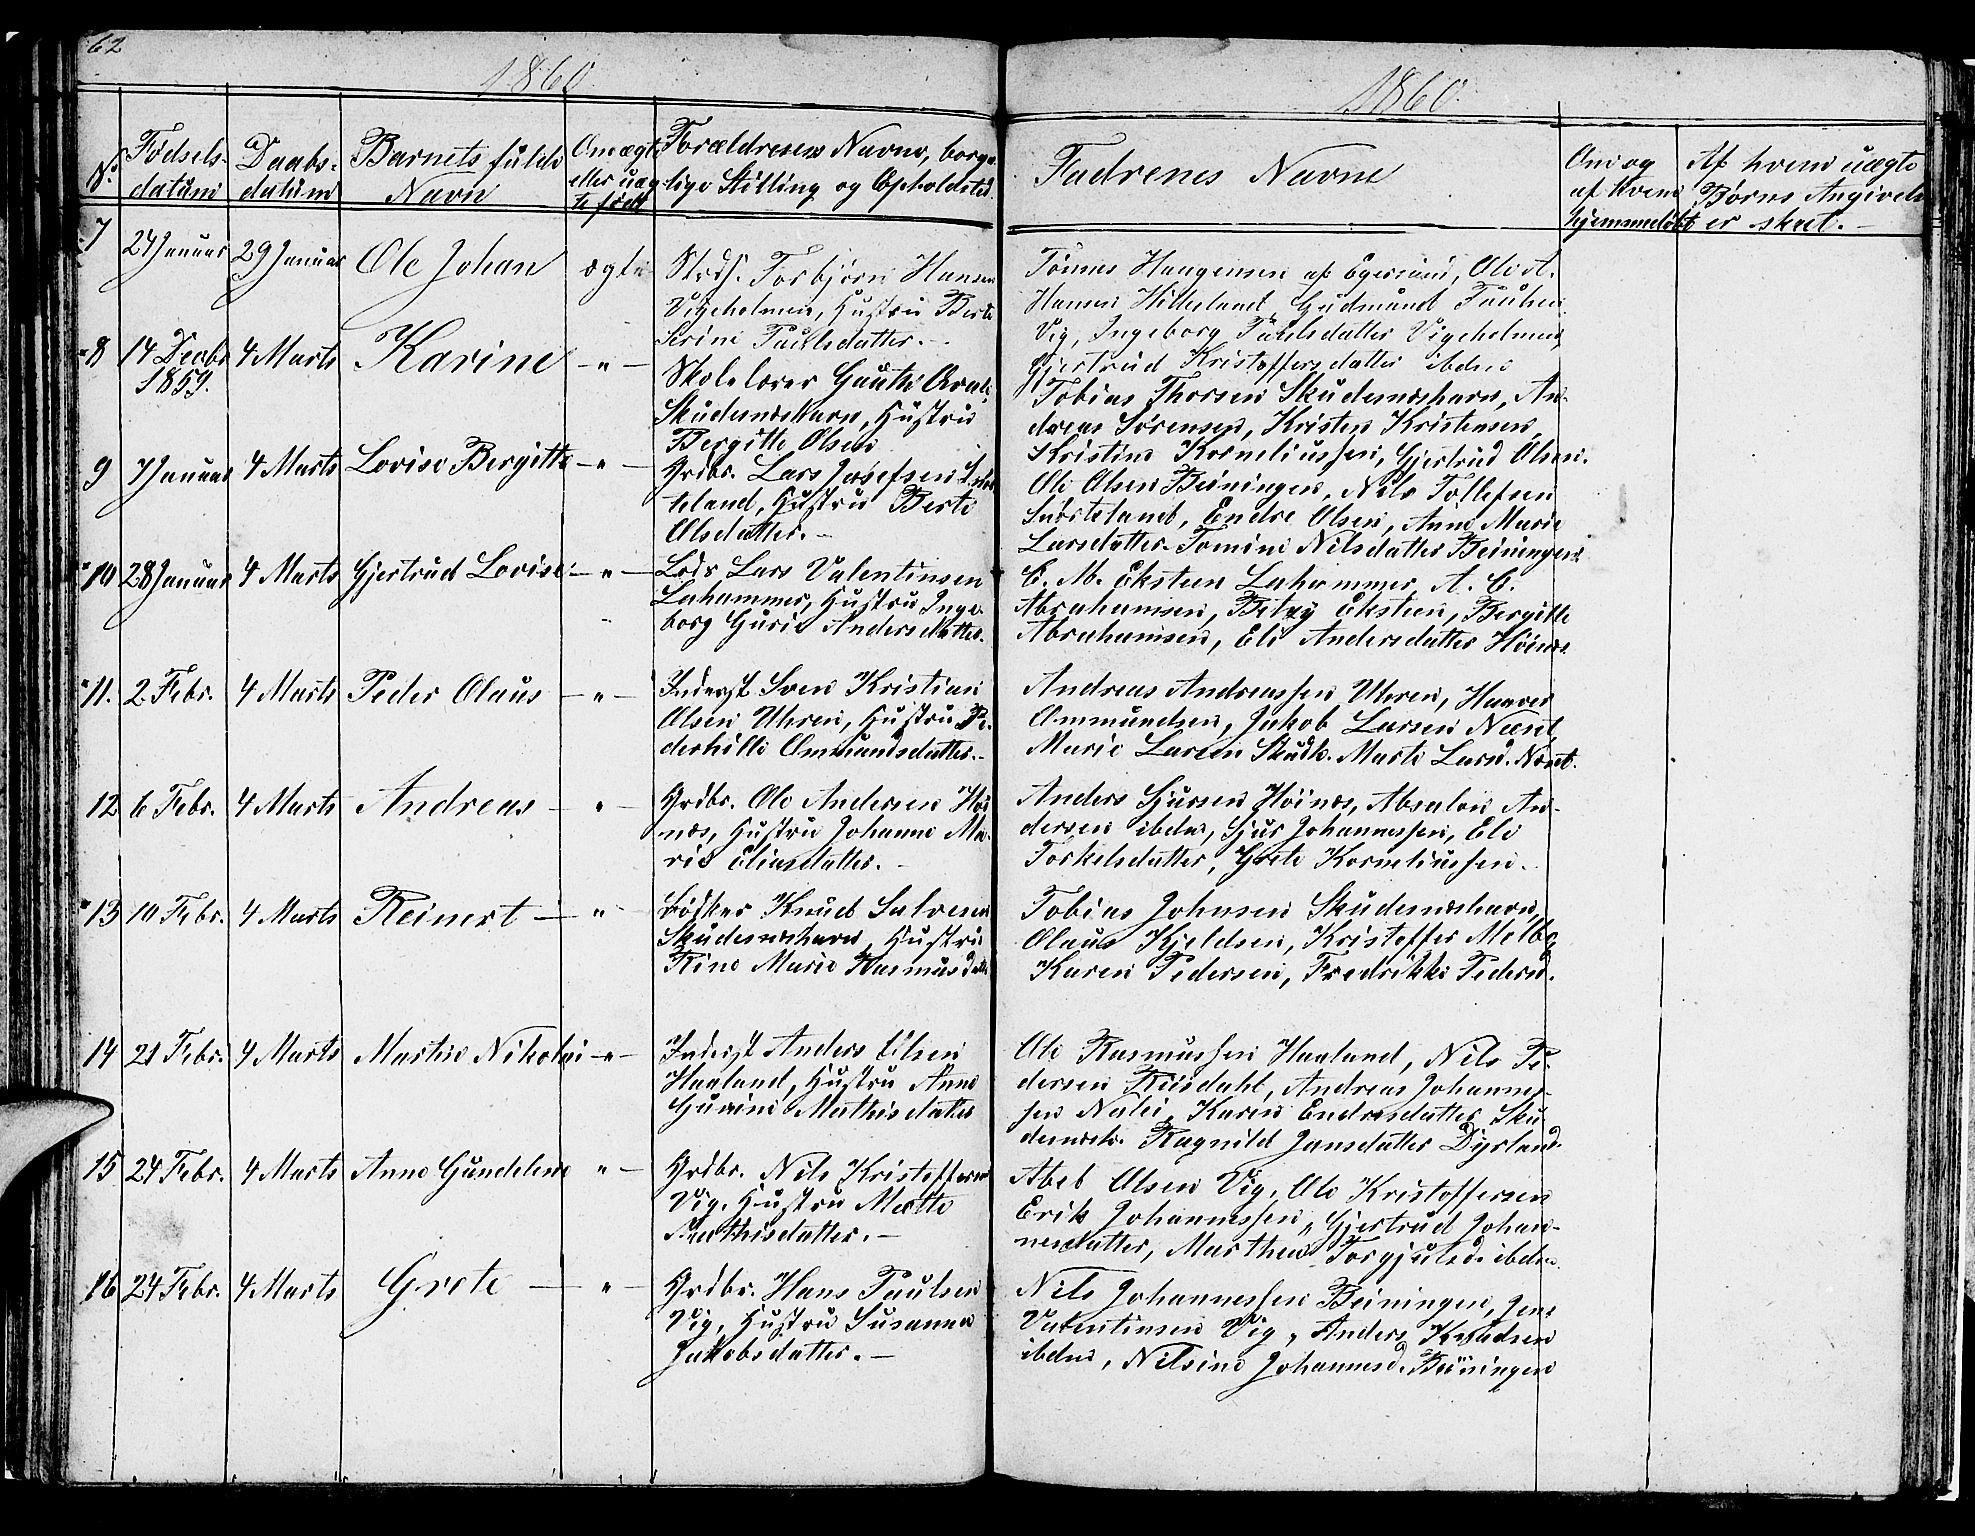 62
1860
1860.
No.
Fødsels-
datum
Daabs-
datum
Barnets fulde
Navn
Om ægte
eller uæg
te født
Forældrenes Navne, borger
lige Stilling og Opholdsted.
Fadrenes Navne
Om og
af hvem
hjemmedøbt
Af hvem uægte
Børns Angivelse
er skeet.
7
24 Januar
29 Januar
Ole Johan
ægte
Torbjørn Hansen
Vigeholmen, Hustru Berte
Serine Paulsdatter.
Tønnes Haugensen af Egersund, Ole A.
Hansen Hillesland, Gudmund Paulsen
Vig, Ingeborg Paulsdatter Vigeholmen
Gjertrud Kristoffersdatter ibdm
8
14 Decbr
1859.
4 Marts
Karine
- " -
Skolelærer Gauthe
Skudesneshavn, Hustru
Bergitte Olsen
Tobias Thorsen Skudesneshavn, An-
dreas Sørensen, Kristen Kristensen,
Kristine Korneliussen, Gjertrud Olsen.
9
7 Januar
4 Marts
Lovise Bergitte
- " -
Grdbr. Lars Josefsen Snør-
teland, Hustru Berte
Olsdatter.
Ole Olsen Beiningen, Nils Tollefsen
Snørteland, Endre Olsen, Anne Marie
Larsdatter. Tomine Nilsdatter Beiningen
10
28 Januar
4 Marts
Gjertrud Lovise
- " -
Lods Lars Valentinsen
Lahammer, Hustru Inge-
borg Gurie Andersdatter.
E. M. Eksteen Lahammer, A. E.
Abrahamsen, Eksteen, Bergitte
Abrahamsen, Eli Andersdatter Høinæs
11.
2 Febr.
4 Marts
Peder Olaus
- " -
Inderst Sven Kristian
Olsen Uhren, Hustru Pe-
derhille Ommundsdatter.
Andreas Andreassen Uhren, Haaver
Ommundsen, Jakob Larsen Næst,
Marie Larsen Skudh. Marte Larsd. Næst.
12
6 Febr.
4 Marts
Andreas
- " -
Grdbr. Ole Andersen Høi
næs, Hustru Johanne Ma-
rie Eliasdatter.
Anders Sjursen Høinæs, Absalon An-
dersen ibdm, Sjur Johannessen, Eli
Torkelsdatter, Grete Korneliussen.
13
10 Febr.
4 Marts
Reinert
- "
Bødker Knud Salvesen
Skudesneshavn, Hustru
Rine Marie Rasmusdatter
Tobias Johnsen Skudesneshavn,
Olaus Kjeldsen, Kristoffer Melby
Karen Pedersen, Fredrikke Pedersd.
14
21 Febr.
4 Marts
Martin Nikolai
- " -
Inderst Anders Olsen
Haaland, Hustru Anne
Gurine Mathisdatter
Ole Rasmussen Haaland, Nils Pe-
dersen Riisdahl, Andreas Johannes-
sen Karen Endresdatter Sku-
desnesh. Ragnild Jansdatter Dysland
15
24 Febr.
4 Marts
Anne Gundeline
" -
Grdbr. Nils Kristoffersen
Vig, Hustru Mette
Mathisdatter.
Abel Olsen Vig, Ole Kristoffersen
Erik Johannessen, Gjertrud Johan-
nesdatter, Marthe Torgjulsd. ibdm.
16
24 Febr.
4 Marts
Grete
- " -
Grdbr. Hans Paulsen
Vig, Hustru Susanne
Jakobsdatter.
Nils Johannessen Beiningen, Jens
Valentinsen Vig, Anders Knudsen
ibdm, Nilsine Johannesd. Beiningen